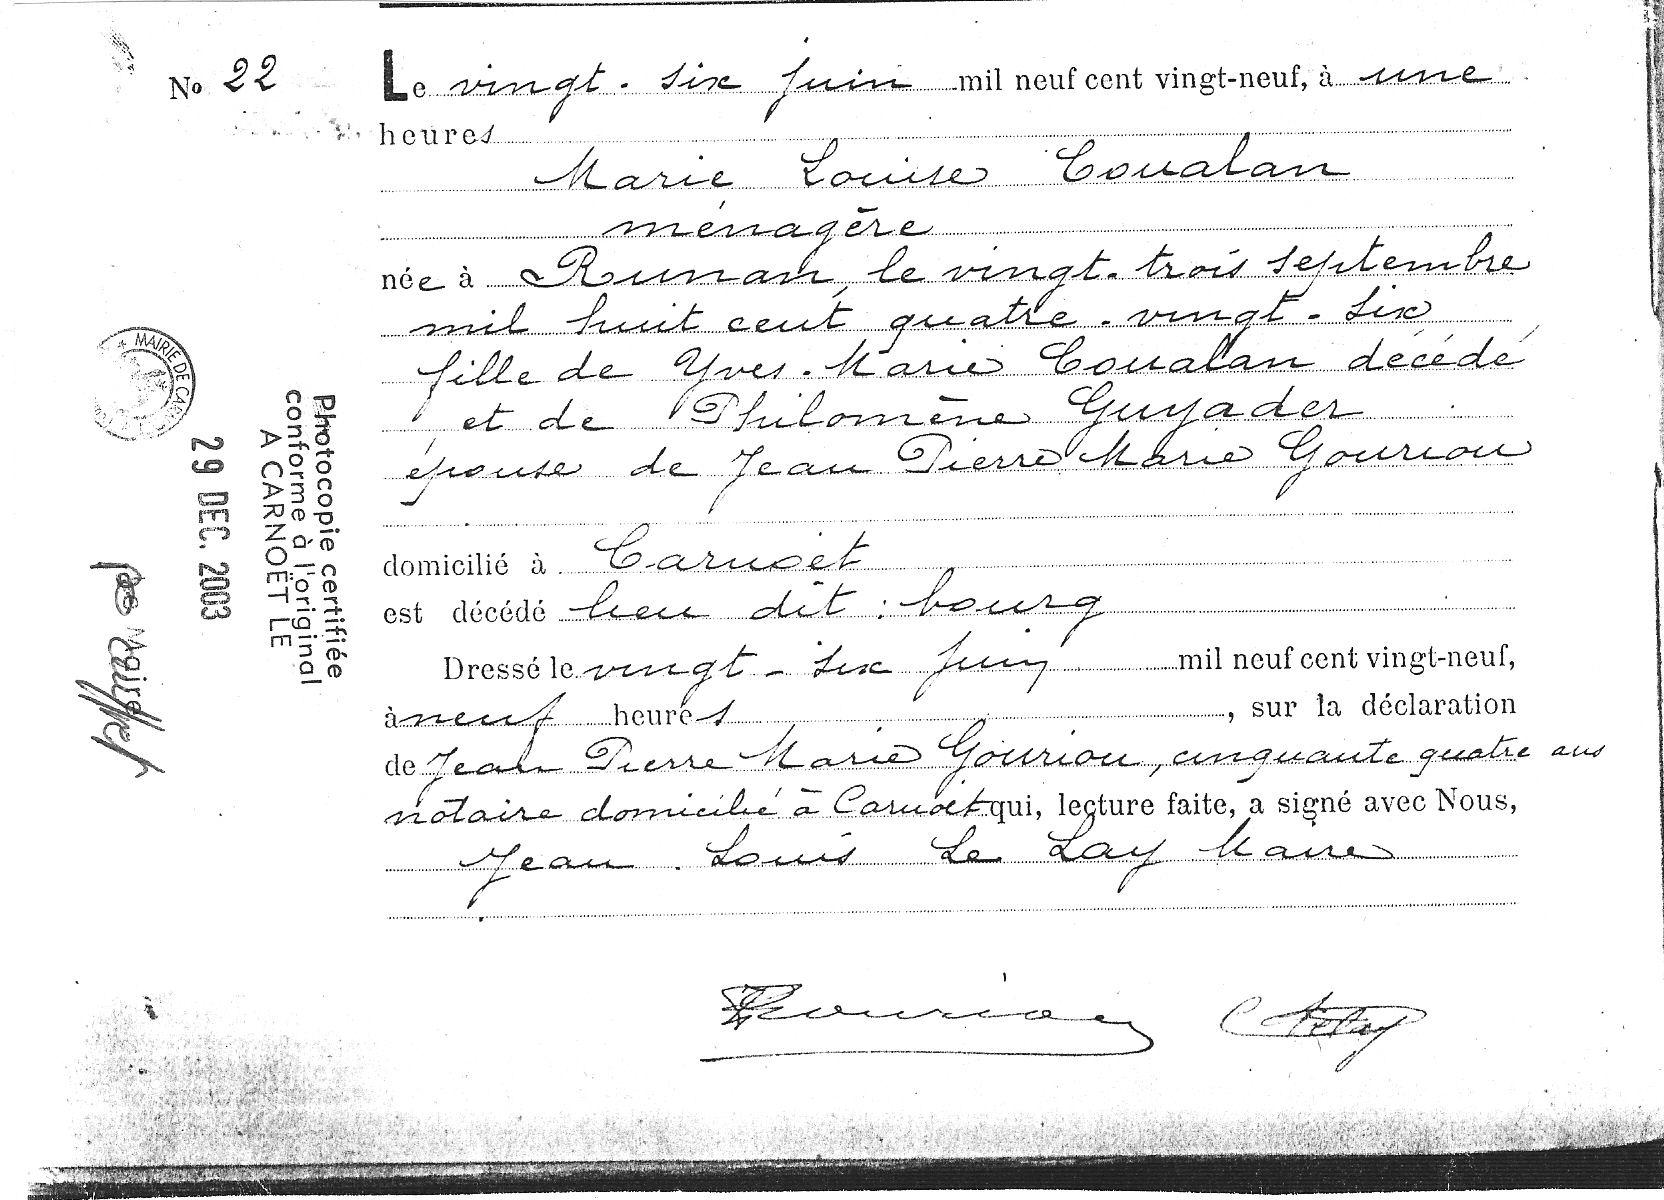 No 22
Le vingt-six juin mil neuf cent vingt-neuf, à une
heures
Marie Louise Coualan
ménagère
née à Runan, le vingt-trois septembre
mil huit cent quatre-vingt-six
fille de Yves-Marie Coualan décédé
et de Philomène Guyader
épouse de Jean Pierre Marie Gouriou
domicilié à Carnoët
est décédé lieu dit : bourg
Dressé le vingt-six juin mil neuf cent vingt-neuf,
à neuf heures, sur la déclaration
de Jean Pierre Marie Gouriou, cinquante quatre ans
notaire domicilié à Carnoët qui, lecture faite, a signé avec Nous,
Jean-Louis Le Lay Maire
Gouriou
MAIRIE DE
29 DEC. 2003
Photocopie certifiée
conforme à l'original
A CARNOËT LE
Maire